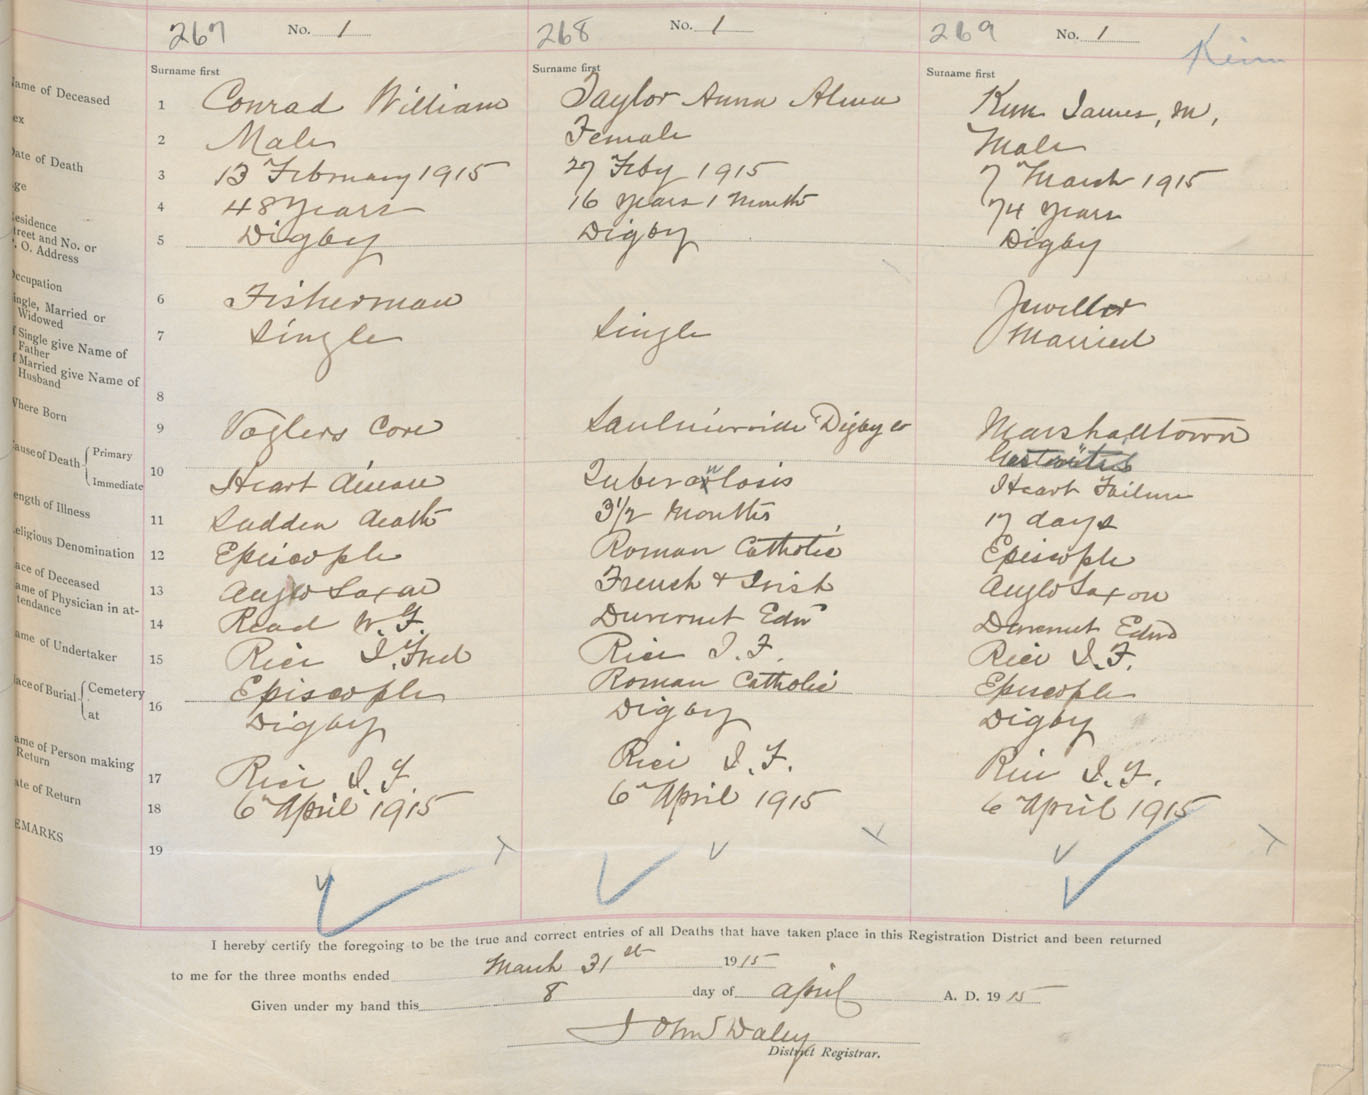 267 No. 1
Surname first
1 Conrad William
2 Male
3 13 February 1915
4 48 years
5 Digby
6 Fisherman
7 Single
8
9 Voglers Cove
10 Heart disease
11 Sudden death
12 Episcople
13 Anglo Saxon
14 Read W. F.
15 Rice I. Fred
Episcople
16 Digby
17 Rice I. F.
18 6 April 1915
19
268 No. 1
Surname first
Taylor Anna Alma
Female
27 Feby 1915
16 years 1 Month
Digby
Single
Digby Co
Tuberculosis
3 1/2 Months
Roman Catholic
French & Irish
Duvernet Edw
Rice I. F.
Roman Catholic
Digby
Rice I. F.
6 April 1915
269 No. 1
Surname first
James, M,
Male
7 March 1915
74 years
Digby
Jeweller
Married
Marshalltown
Heart Failure
17 days
Episcople
Anglo Saxon
Duvernet Edwd
Rice I. F.
Episcople
Digby
Rice I. F.
6 April 1915
ame of Deceased
ex
ate of Death
ge
esidence
treet and No. or
. O. Address
ccupation
ingle, Married or
Widowed
f Single give Name of
Father
f Married give Name of
Husband
Where Born
ause of Death { Primary
Immediate
ength of Illness
eligious Denomination
ace of Deceased
ame of Physician in at-
tendance
ame of Undertaker
lace of Burial { Cemetery
at
ame of Person making
Return
ate of Return
EMARKS
I hereby certify the foregoing to be the true and correct entries of all Deaths that have taken place in this Registration District and been returned
to me for the three months ended March 31st 1915
Given under my hand this 8 day of April A. D. 1915
John Daley
District Registrar.